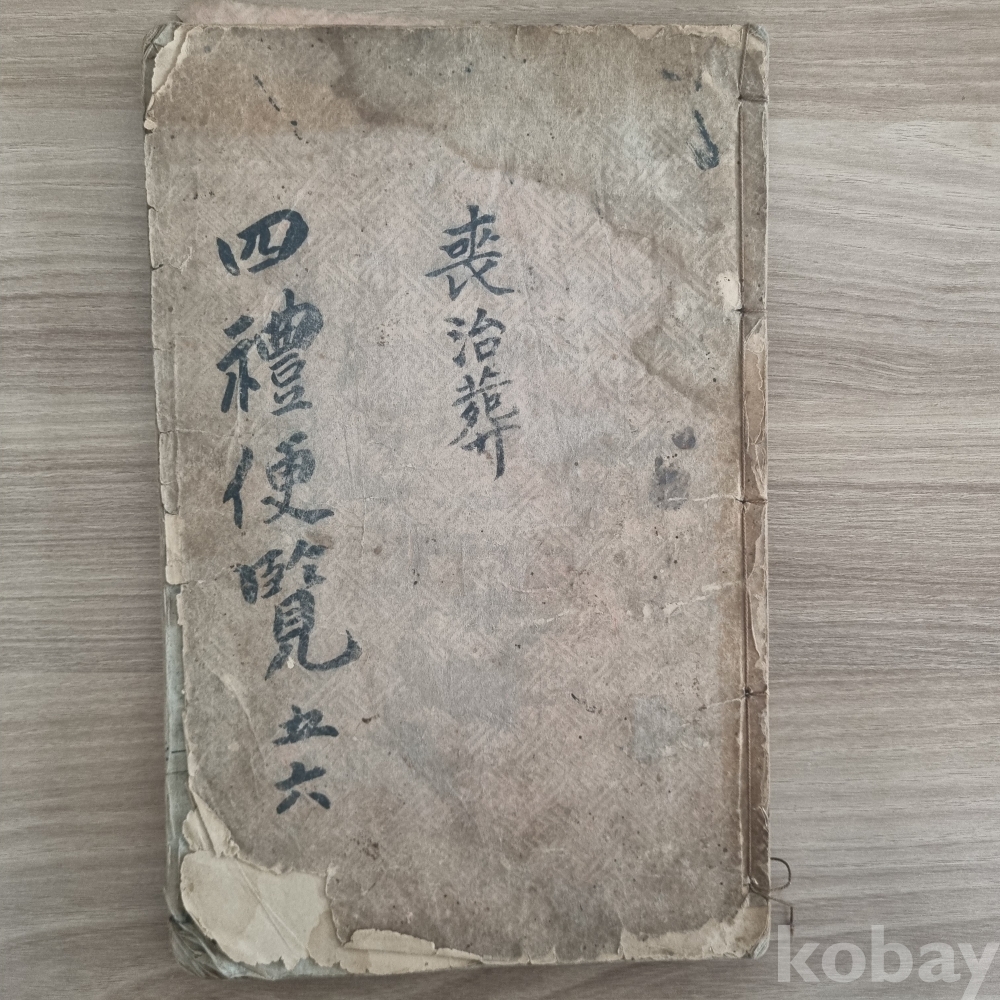 喪治葬
四禮便覽 五六
kobay